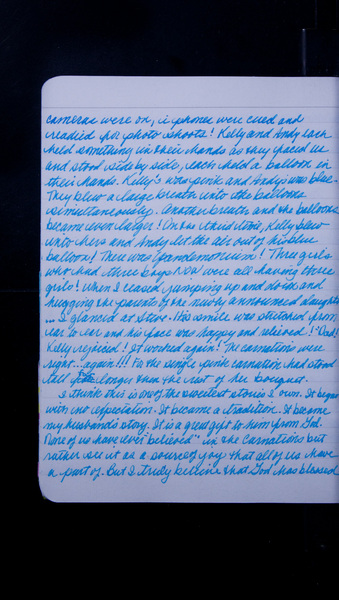 cameras were on, i phones were cued and
readied for photo shoots! Kelly and Andy each
held something in their hands as they faced us
and stood side by side, each held a balloon in
their hands. Kelly's was pink and Andy's was blue.
They blew a large breath into the balloons
simultaneously. Another breath and the balloons
became even larger! On the third time, Kelly blew
into hers and Andy let the air out of his blue
balloon! There was pandemonium! Three girls
who had three boys now were all having three
girls! When I ceased jumping up and down and
hugging the parents of the newly announced daughter
... I glanced at Steve. His smile was stretched from
ear to ear and his face was happy and relieved! "Dad!
Kelly rejoiced! It worked again! The carnations were
right...again!!! For the single pink carnation had stood
tall longer than the rest of her bouquet.
I think this is one of the sweetest stories I own. It began
with no expectation. It became a tradition. It became
my husband's story. It is a great gift to him from God.
None of us have ever "believed" in the carnations but
rather see it as a source of joy that all of us have
a part of. But I truly believe that God has blessed